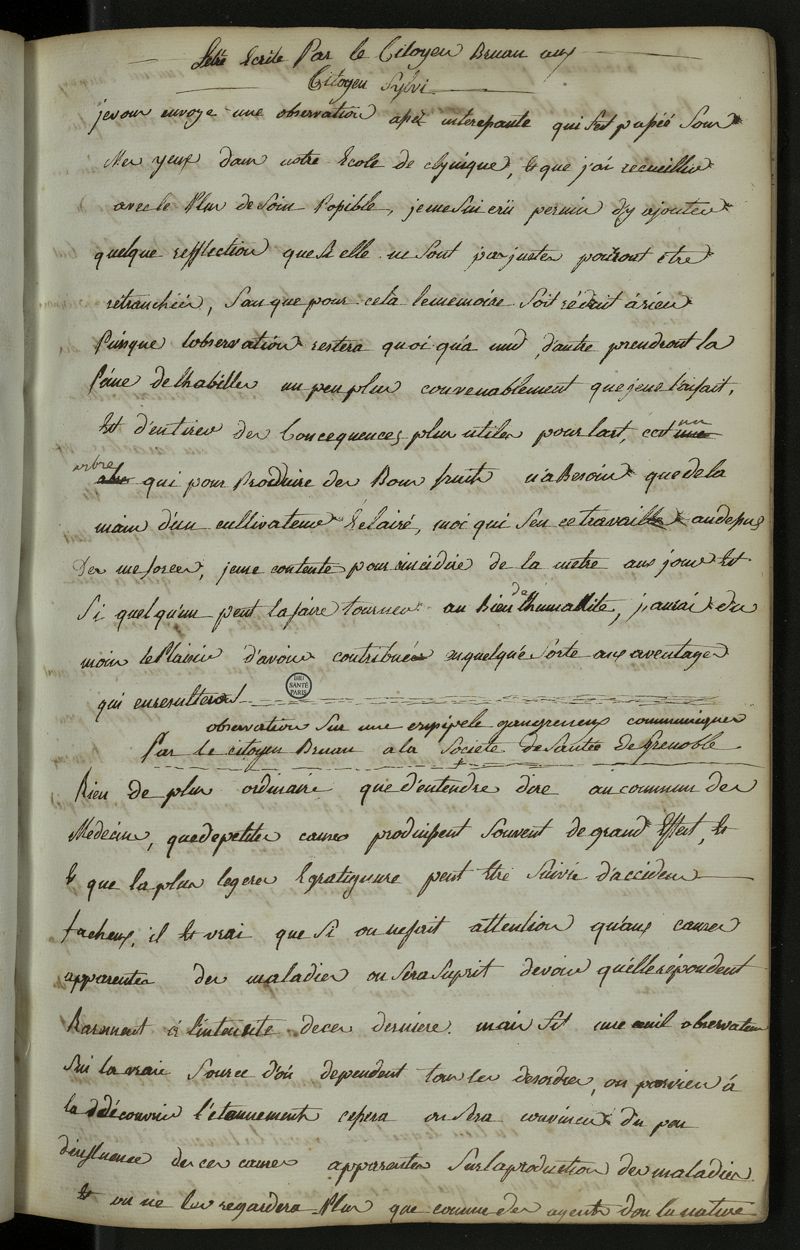 Letre Ecrite Par le Citoyen Bruan aux
Citoyen Sylvi
je vous envoye une observation assés interessante qui s'est passée sous
Mes yeux dans notre Ecole de clynique, et que j'ai recueillis
avec le Plus de Soin Possible, je me Suis crû permis d'y ajouter
quelque refflection que Si elle ne Sont pas justes pouront être
retranchées, Sans que pour cela le memoire Soit réduit à rien
Puisque l'observation restera quoi qu'a nud, d'autre prendront la
Péine de L'habiller un peu plus convenablement que je ne l'ai fait,
Et d'en tirer des Concequences plus utiles pour l'art, cest un
arbre qui pour Produire des Bons fruits n'a Besoin que de la
main d'un cultivateur Eclairé, moi qui Sens ce travail au depus
Des mes forces, je me contente pour de la metre aux jour Et
Si quelqu'un peut la faire tourner au Bien de l'humanite, j'aurai du
moin le Plaisir d'avoir contribuér en quelque Sorte aux aventages
qui en resulteront
BIU SANTÉ PARIS
observation Sur une erysipele gangreneux communiquer
Par le citoyen Bruan a la Societé de Santée de Grenoble
Rien de plus ordinaire que d'entendre dire au commun des
Médecins, que de petites causes produissent Souvent de grand Effect, Et
Et que la plus legere Egratignure peut Etre Suivie d'accidens
facheux, il Est vrai que Si on ne fait attention qu'aux causes
apparentes des maladies on Sera Suprit de voir qu'elle répondent
Rarement à l'intensité de ces derniere. mais Si une oeuil observateur
Sui la vraie Source d'ou dependent tous les desordres, on parvien à
la découvrir l'etonnement cessera on Sera convincu du peu
d'influence de ces causes apparentes Sur la production des maladies
Et on ne les regardera Plus que comme des agents dont la nature